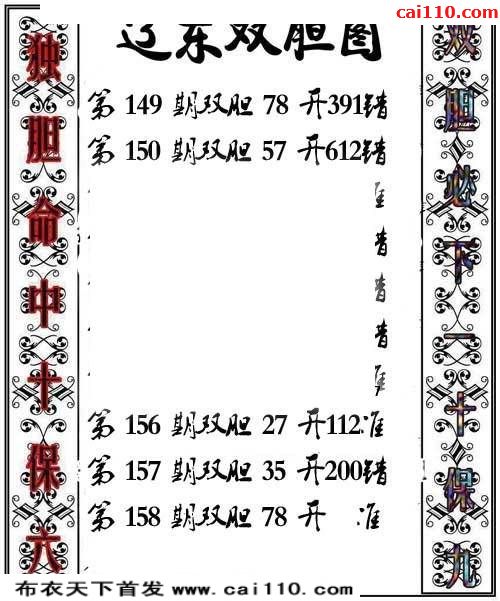 cai110.com
辽东双胆图
独胆命中十保六
第 149 期双胆 78 开391错
第 150 期双胆 57 开612错
第 156 期双胆 27 开112准
第 157 期双胆 35 开200错
第 158 期双胆 78 开 准
双胆必下一十保九
布衣天下首发 www.cai110.com